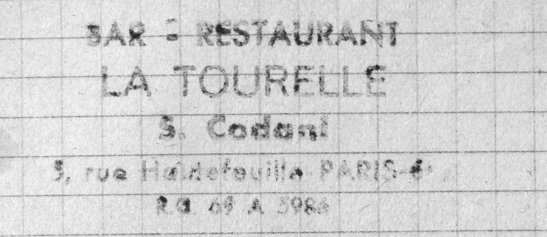 BAR - RESTAURANT
LA TOURELLE
S. Codani
5, rue Hautefeuille PARIS-6e
R.C. 69 A